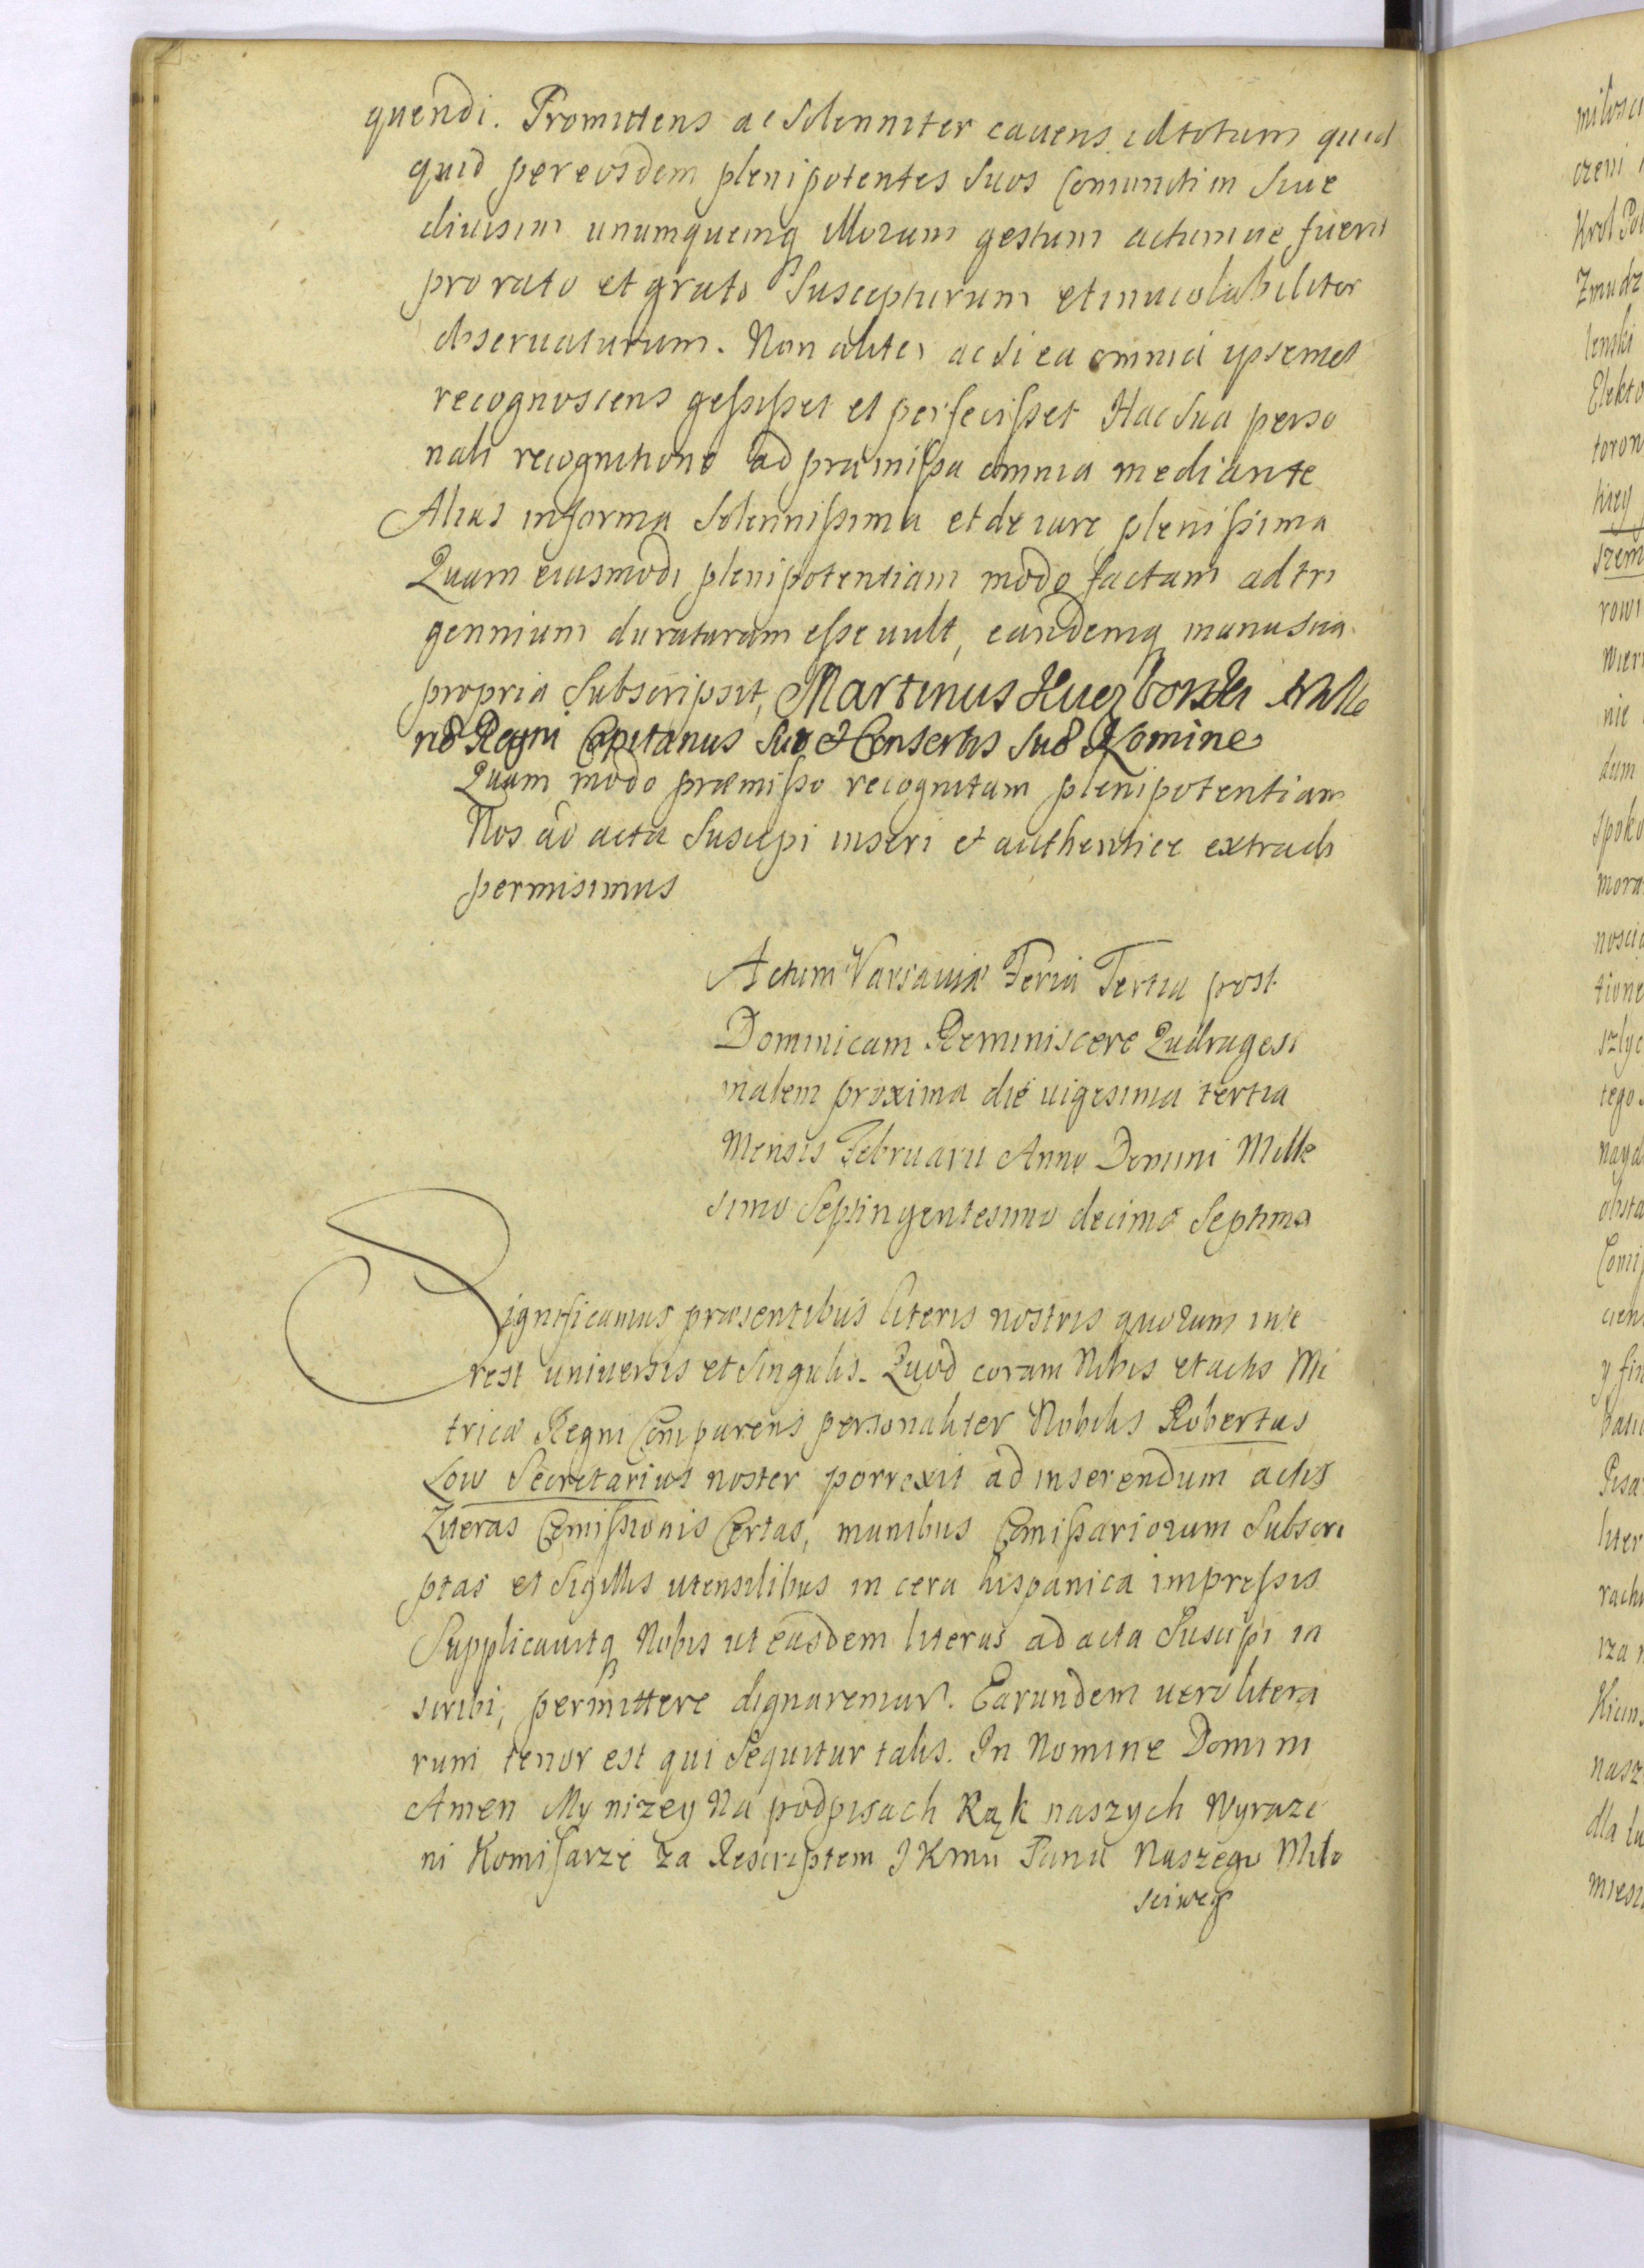 quendi. Promittens ac Solenniter cauens id totum quid
quid per eosdem plenipotentes Suos Coniunctim Siue
diuisim unumquemq illorum gestum actumue fuerit
pro rato et grato Suscepturum et inuiolabiliter
obseruaturum. Non aliter ac si ea omnia ipsemet
recognoscens gessisset et perfecisset Hac Sua perso
nali recognitione ad præmissa omnia mediante
Alias in forma Solennissima et de iure plenissima
Quam eiusmodi plenipotentiam modo factam ad tri
gennium duraturam esse uult, eandemq manu sua
propria Subscripsit, Martinus
no Regni Capitanus Suo et Consortis Suo Nomine
Quam modo præmisso recognitam plenipotentiam
Nos ad acta Suscipi inseri et authentice extradi
permisimus
Actum Varsauiæ Feria Tertia post
Dominicam Reminiscere Qadragesi
malem proxima die uigesima tertia
Mensis Februarii Anno Domini Mille
simo Septingentesimo decimo Septimo
Significamus præsentibus literis nostris quorum inte
rest uniuersis et Singulis. Quod coram Nobis et actis Me
tricæ Regni Comparens personaliter Nobilis Robertus
Low Secretarius noster porrexit ad inserendum actis
Literas Comissionis Certas, manibus Comissariorum Subscri
ptas et Sigillis utensilibus in cera hispanica impressis
Supplicauitq Nobis ut easdem literas ad acta Suscipi in
scribi, permittere dignaremur. Earundem uero litera
rum tenor est qui Sequitur talis. In Nomine Domini
Amen My nizey Na podpisach Rąk naszych Wyraze
ni Komissarze za Rescriptem J K Mci Pana Naszego Milo
sciweg